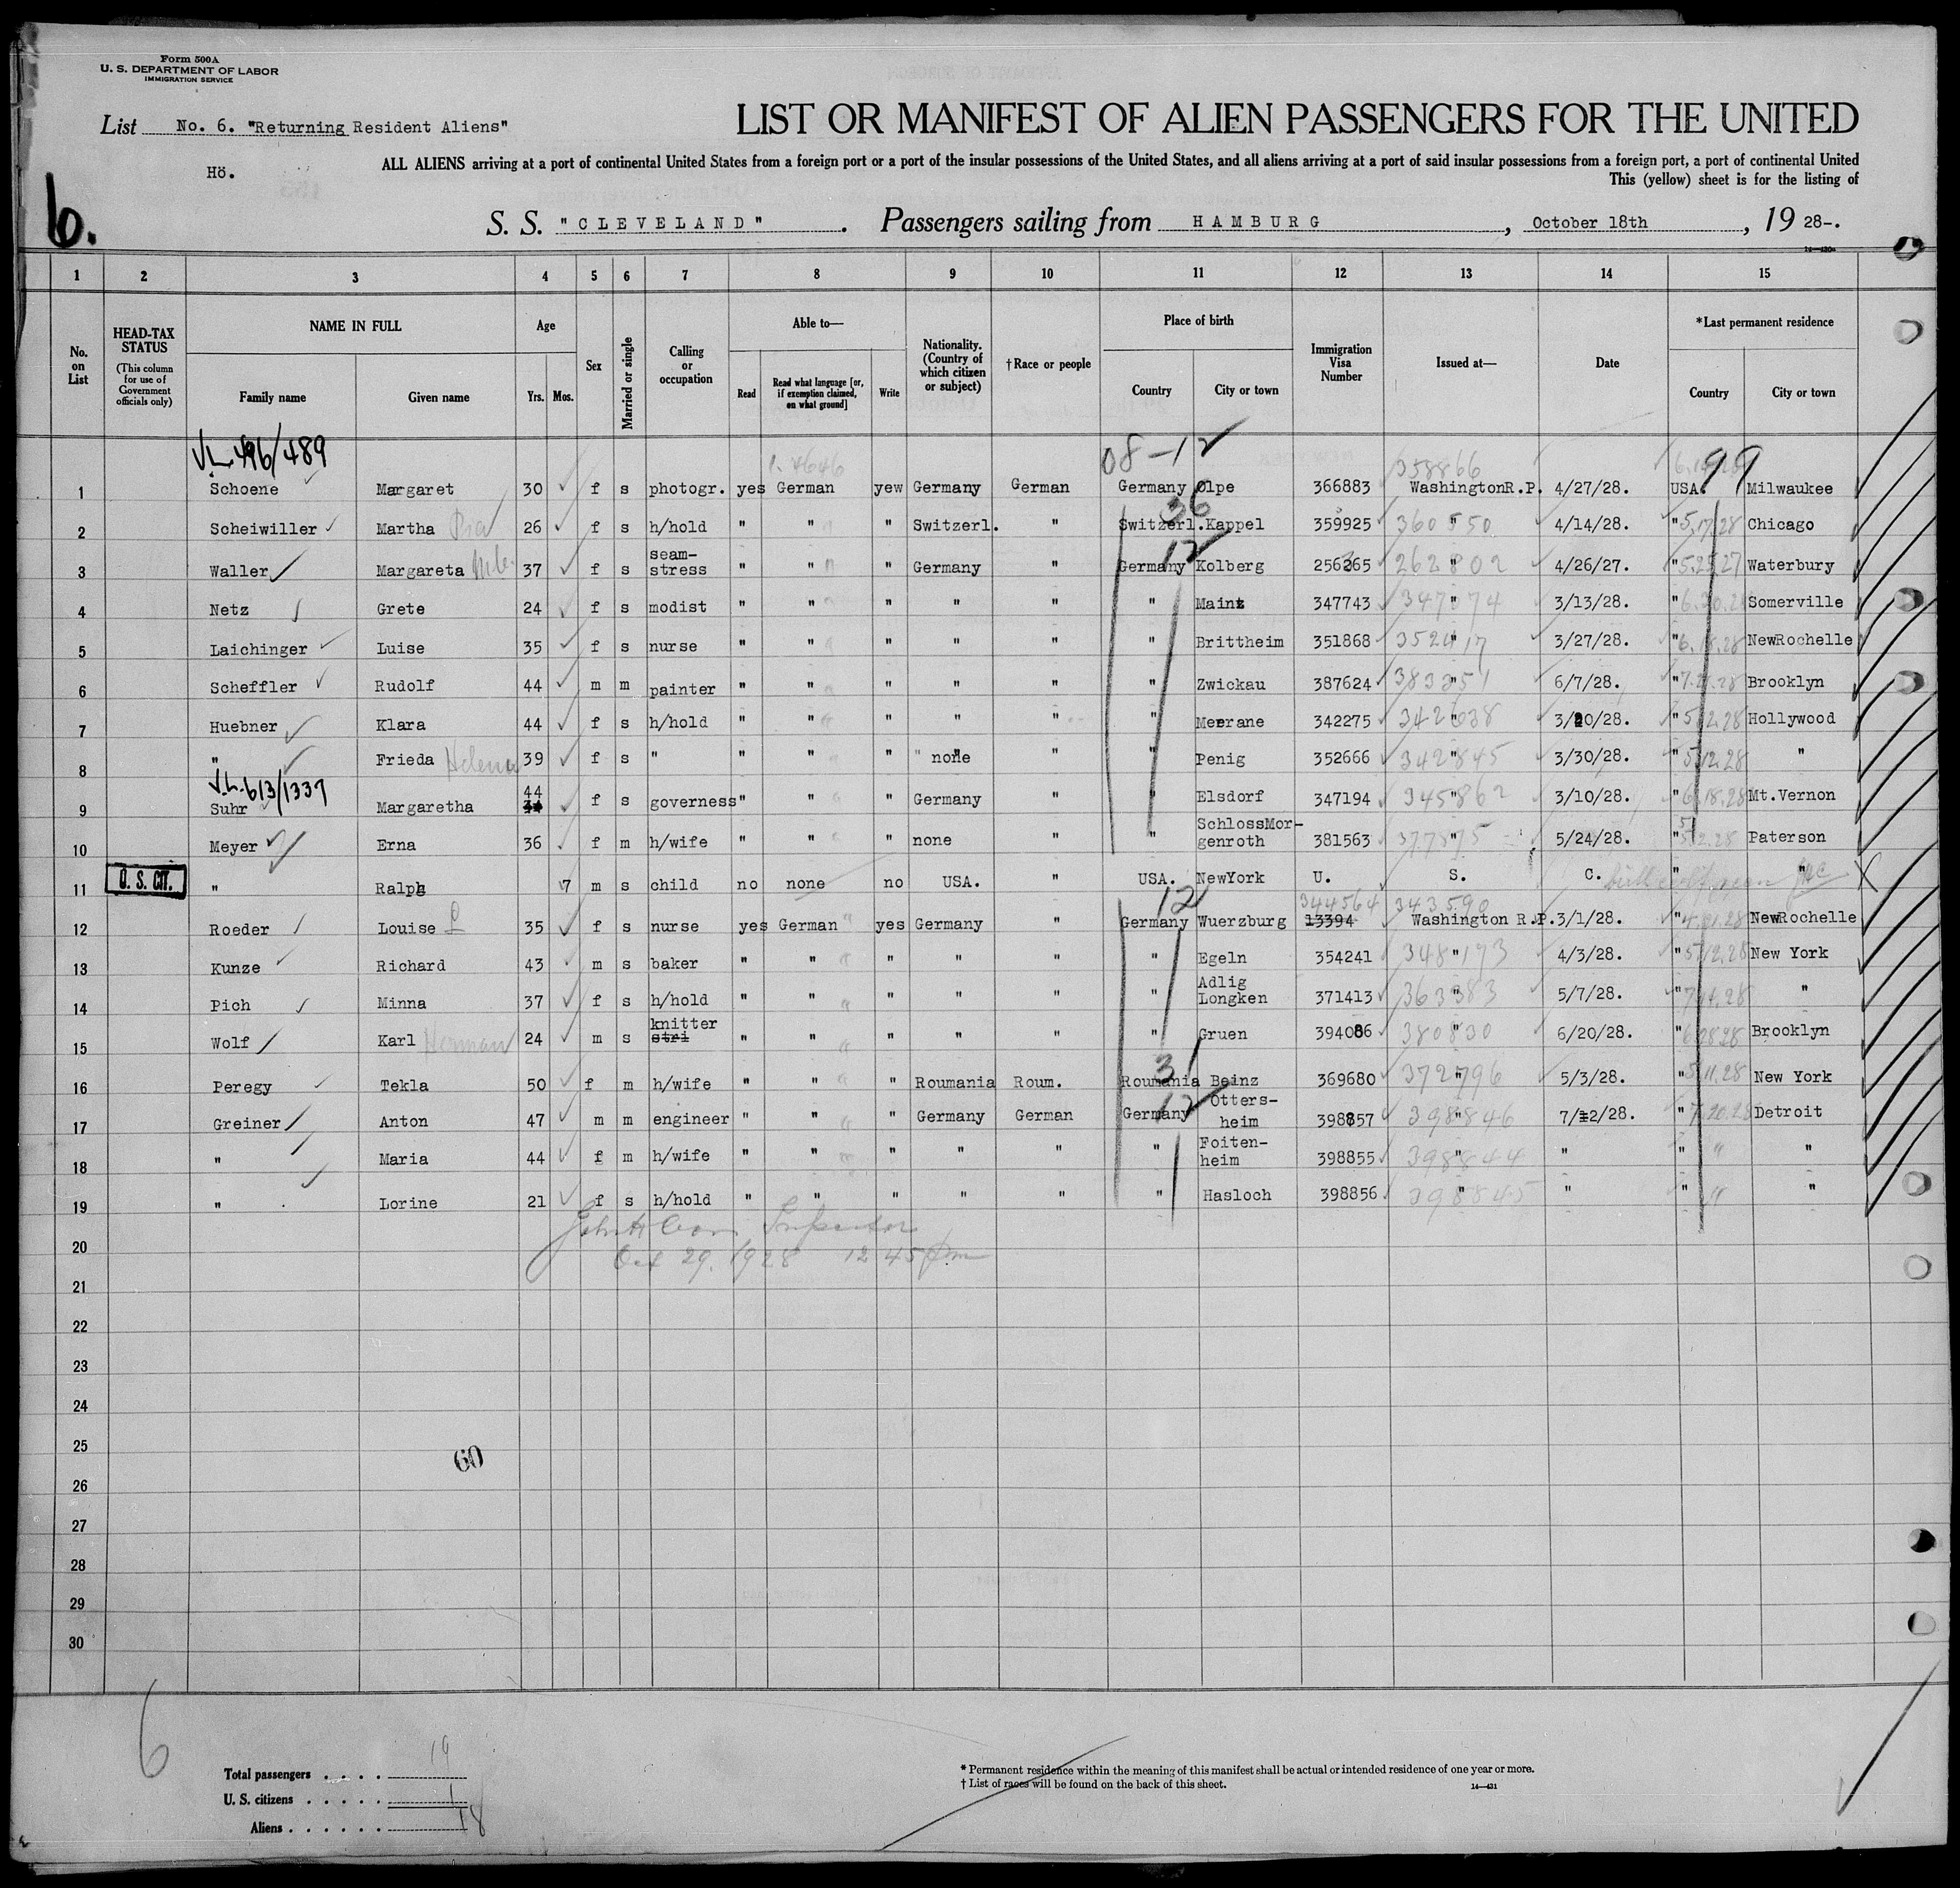 Form 500A
U. S. DEPARTMENT OF LABOR
IMMIGRATION SERVICE
List No. 6. "Returning Resident Aliens"
LIST OR MANIFEST OF ALIEN PASSENGERS FOR THE UNITED
Hö.
ALL ALIENS arriving at a port of continental United States from a foreign port or a port of the insular possessions of the United States, and all aliens arriving at a port of said insular possessions from a foreign port, a port of continental United
This (yellow) sheet is for the listing of
6.
S. S. "CLEVELAND". Passengers sailing from HAMBURG, October 18th, 19 28-.
1 2 3 4 5 6 7 8 9 10 11 12 13 14 15
No. on List
HEAD-TAX STATUS
(This column for use of Government officials only)
NAME IN FULL
Family name Given name
Age
Yrs. Mos.
Sex
Married or single
Calling or occupation
Able to—
Read
Read what language [or, if exemption claimed, on what ground]
Write
Nationality. (Country of which citizen or subject)
† Race or people
Place of birth
Country City or town
Immigration Visa Number
Issued at—
Date
* Last permanent residence
Country City or town
08-12 358866 99
1 Schoene Margaret 30 f s photogr. yes German yew Germany German Germany Olpe 366883 Washington R.P. 4/27/28. USA. Milwaukee
36
2 Scheiwiller Martha 26 f s h/hold " " " Switzerl. " Switzerl. Kappel 359925 360550 " 4/14/28. " 5.17.28 Chicago
12
3 Waller Margareta 37 f s seam-stress " " " Germany " Germany Kolberg 256265 262802 " 4/26/27. " 5.25.27 Waterbury
4 Netz Grete 24 f s modist " " " " " " Mainz 347743 " 3/13/28. " Somerville
5 Laichinger Luise 35 f s nurse " " " " " " Brittheim 351868 352417 " 3/27/28. " 6.18.28 NewRochelle
6 Scheffler Rudolf 44 m m painter " " " " " " Zwickau 387624 " 6/7/28. " Brooklyn
7 Huebner Klara 44 f s h/hold " " " " " " Meerane 342275 342638 " 3/20/28. " 5.12.28 Hollywood
8 " Frieda Helena 39 f s " " " " none " " Penig 352666 342845 " 3/30/28. " 5.12.28 "
613/1337
9 Suhr Margaretha 44 f s governess " " " Germany " " Elsdorf 347194 345862 " 3/10/28. " 6.18.28 Mt.Vernon
10 Meyer Erna 36 f m h/wife " " " none " " SchlossMor-genroth 381563 377875 " 5/24/28. " Paterson
11 U. S. CIT. " Ralph 7 m s child no none no USA. " USA. NewYork U. S. C. " "
12 344564 343590
12 Roeder Louise 35 f s nurse yes German yes Germany " Germany Wuerzburg 13394 Washington R.P. 3/1/28. " NewRochelle
13 Kunze Richard 43 m s baker " " " " " " Egeln 354241 348193 " 4/3/28. " 5.12.28 New York
14 Pich Minna 37 f s h/hold " " " " " " Adlig Longken 371413 363383 " 5/7/28. " "
15 Wolf Karl Herman 24 m s knitter stri " " " " " " Gruen 394086 380830 " 6/20/28. " 6.28.28 Brooklyn
31
16 Peregy Tekla 50 f m h/wife " " " Roumania Roum. Roumania Beinz 369680 372796 " 5/3/28. " 5.11.28 New York
12
17 Greiner Anton 47 m m engineer " " " Germany German Germany Otters-heim 398857 398846 " 7/12/28. " 7.20.28 Detroit
18 " Maria 44 f m h/wife " " " " " " Foiten-heim 398855 398844 " " " " "
19 " Lorine 21 f s h/hold " " " " " " Hasloch 398856 398845 " " " " "
20 Inspector
Oct 29. 1928 12 45 pm
21
22
23
24
25
60
26
27
28
29
30
6
Total passengers . . . . 19
U. S. citizens . . . . . 1
Aliens . . . . . . 18
* Permanent residence within the meaning of this manifest shall be actual or intended residence of one year or more.
† List of races will be found on the back of this sheet. 14—431